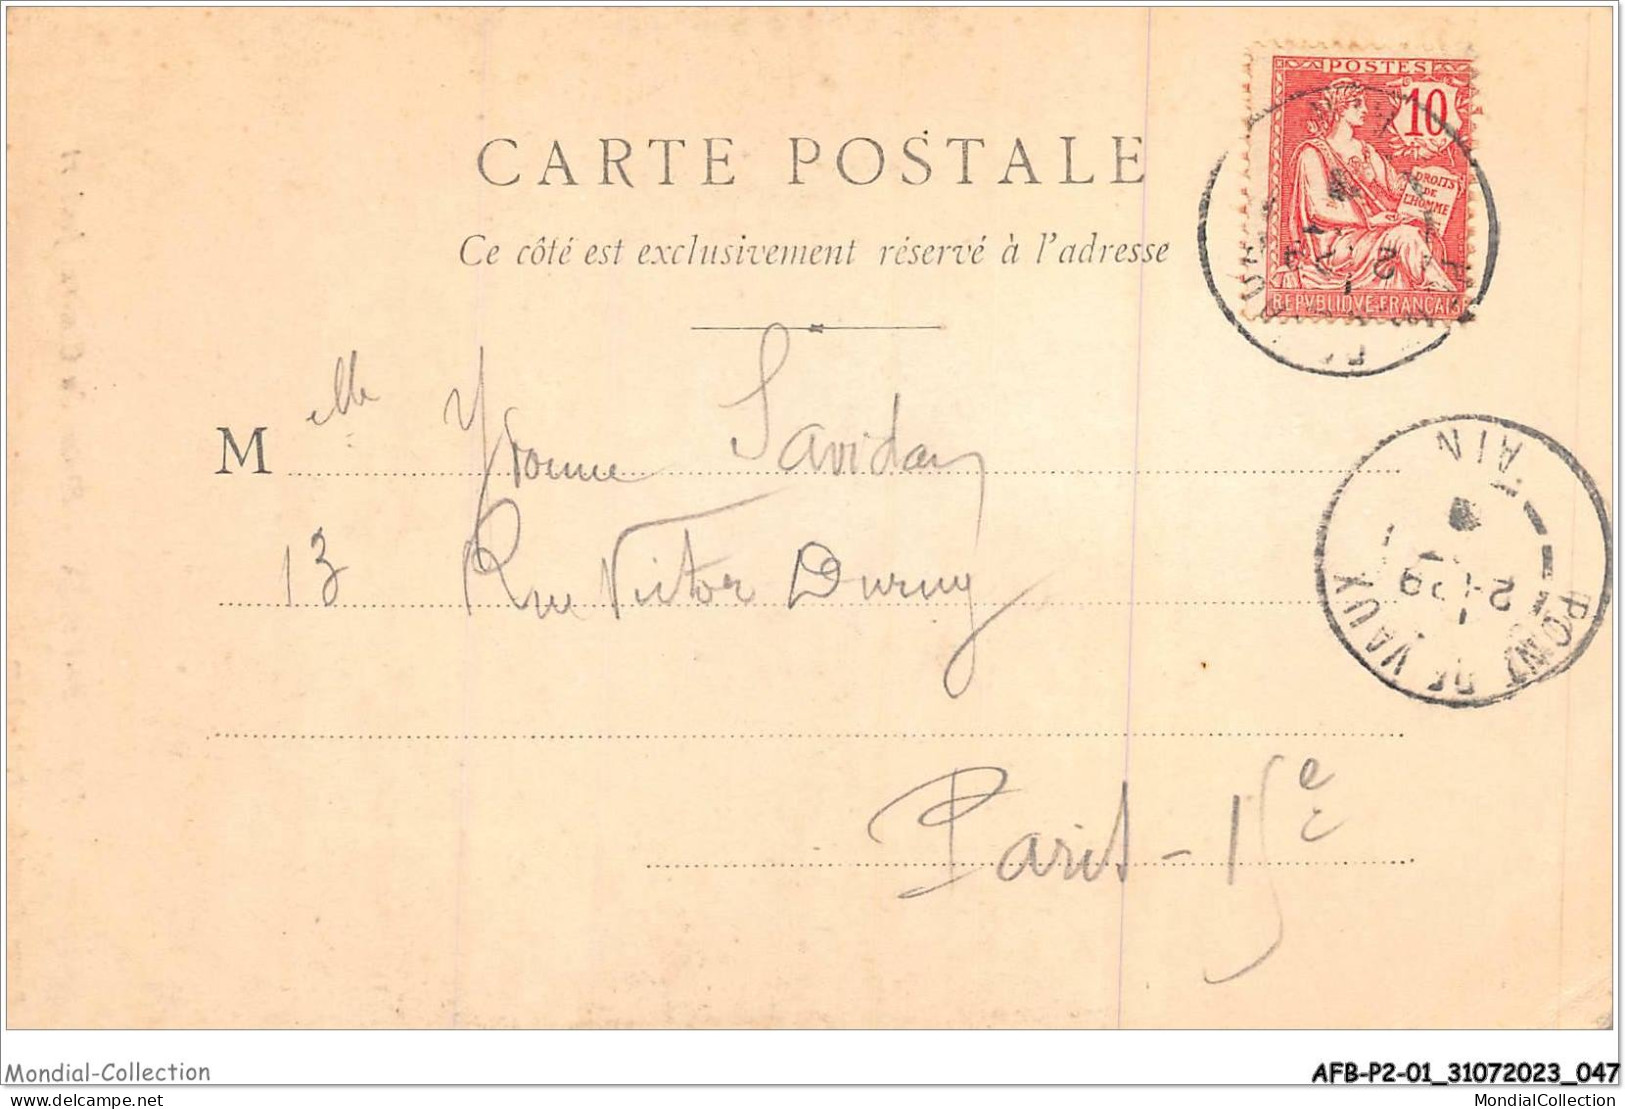 POSTES
10
DROITS
DE
L'HOMME
REPVBLIQVE FRANÇAISE
CARTE POSTALE
Ce côté est exclusivement réservé à l'adresse
M elle Yvonne Savidan
13 Rue Victor Duruy
Paris - 15e
PONT DE VAUX
AIN
Mondial-Collection
AFB-P2-01_31072023_047
delcampe.net
MondialCollection